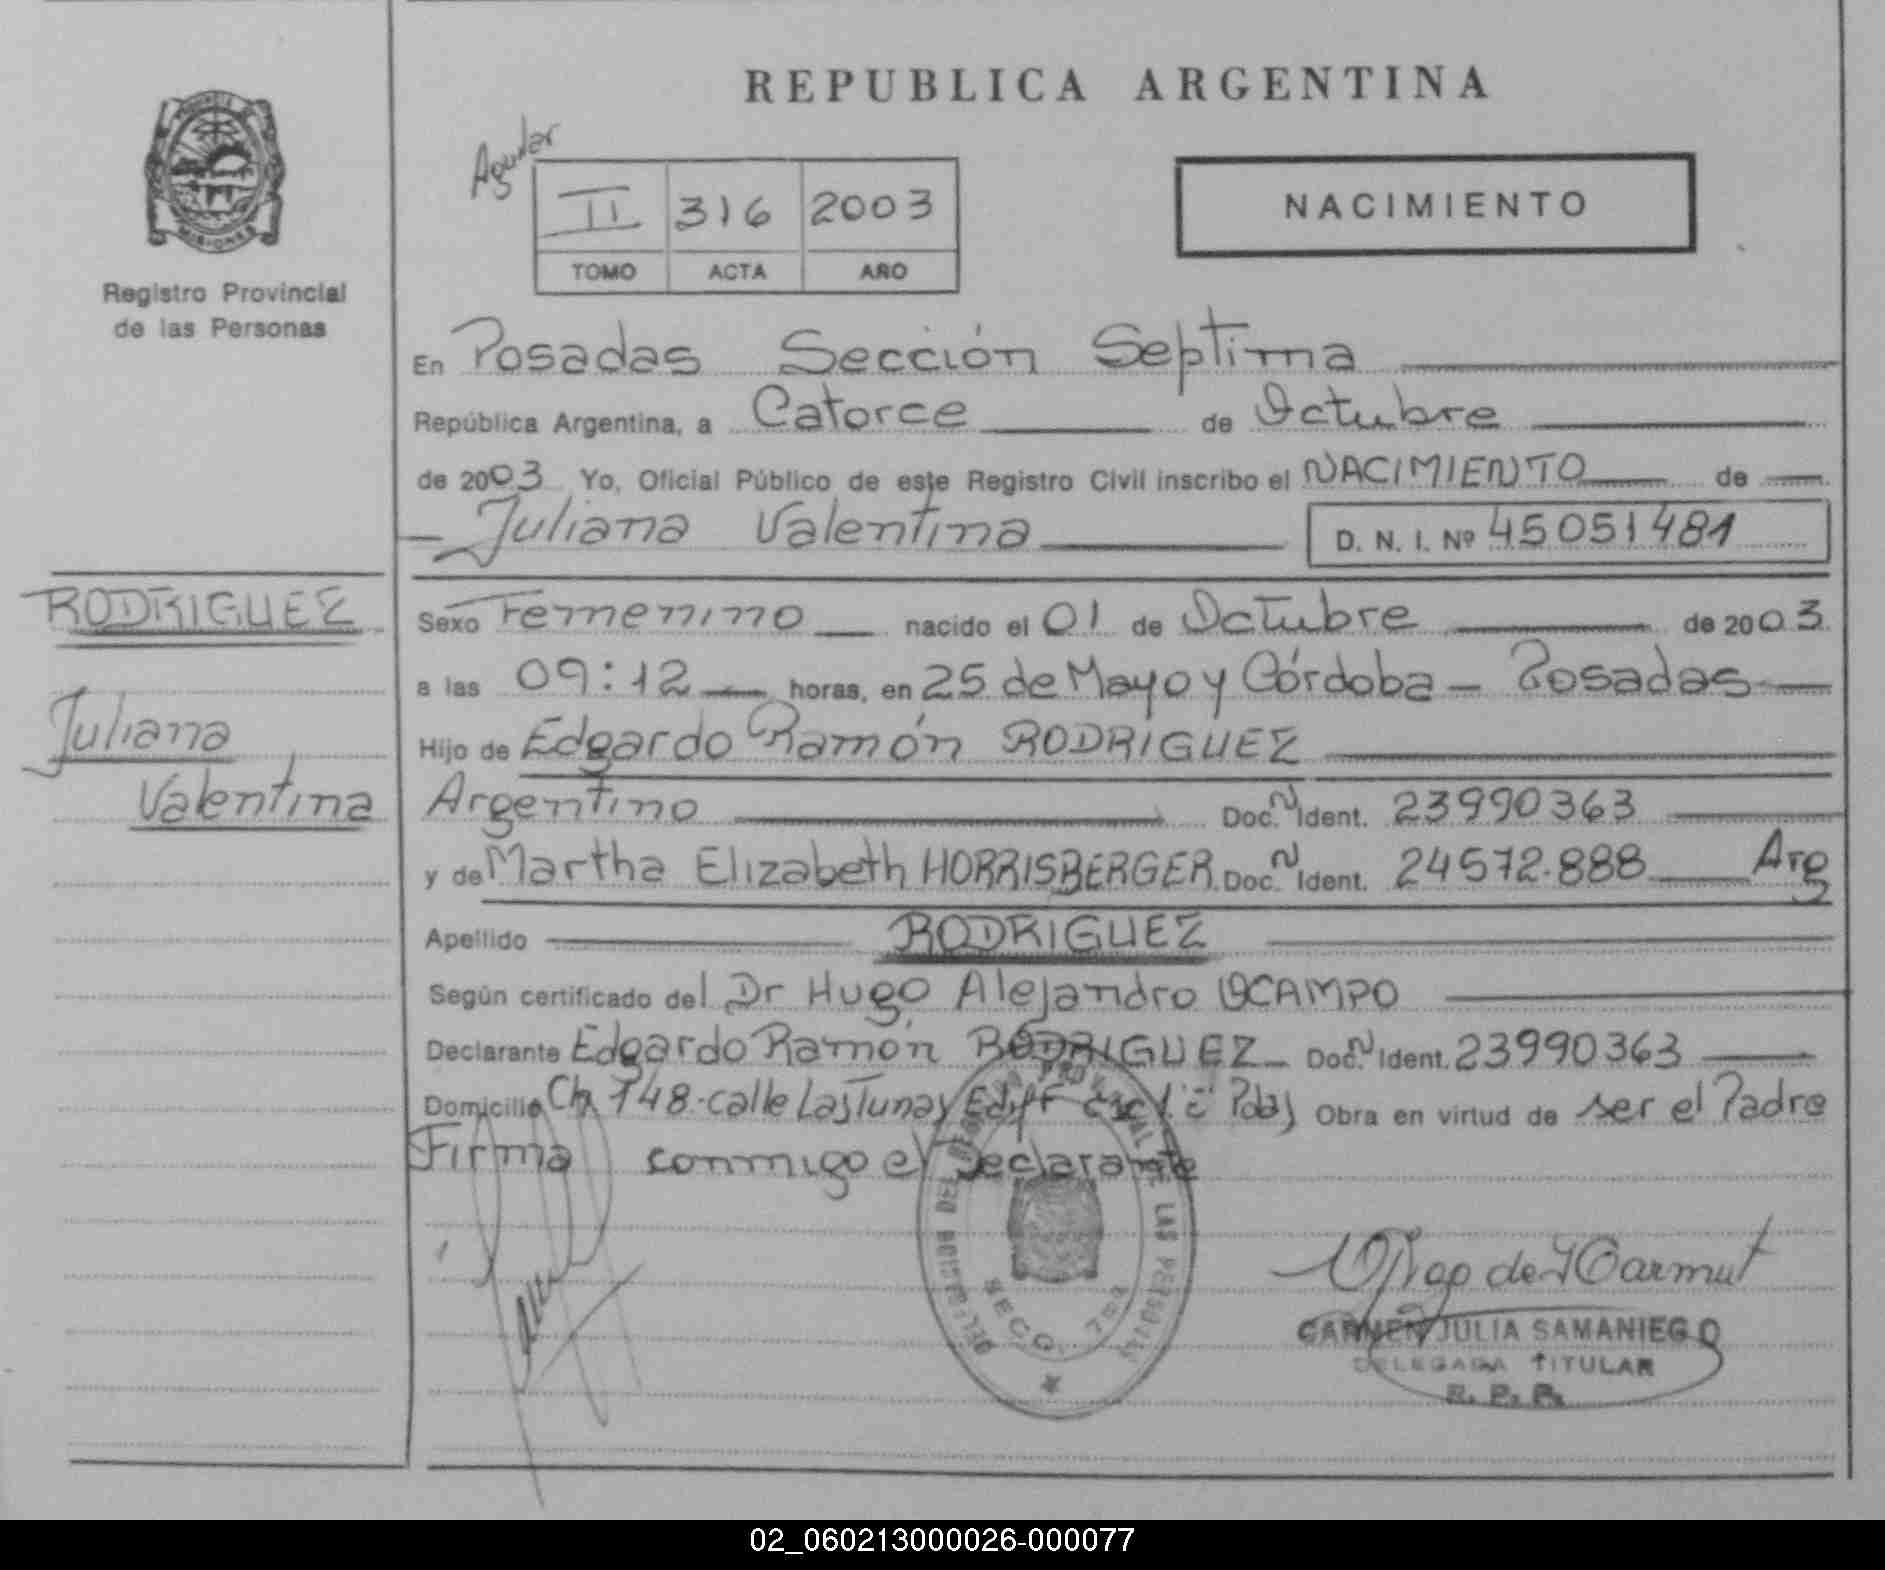 REPUBLICA ARGENTINA
PROVINCIA DE
MISIONES
Registro Provincial
de las Personas
Aguilar
II 316 2003
TOMO ACTA AÑO
NACIMIENTO
En Posadas Sección Septima
República Argentina, a Catorce de Octubre
de 2003 Yo, Oficial Público de este Registro Civil inscribo el NACIMIENTO de
Juliana Valentina D. N. I. Nº 45051481
RODRIGUEZ
Juliana
Valentina
Sexo Femenino nacido el 01 de Octubre de 2003
a las 09:12 horas, en 25 de Mayo y Córdoba - Posadas
Hijo de Edgardo Ramón RODRIGUEZ
Argentino Doc. N Ident. 23990363
y de Martha Elizabeth HORRISBERGER Doc. N Ident. 24572.888 Arg
Apellido RODRIGUEZ
Según certificado del Dr Hugo Alejandro OCAMPO
Declarante Edgardo Ramón RODRIGUEZ Doc. N Ident. 23990363
Domicilio Ch 148 - calle Las Tunas Edif Pdas Obra en virtud de ser el Padre
Firma conmigo el Declarante
DELEGACION DEL REGISTRO PROVINCIAL DE LAS PERSONAS
SECC. 7ma
CARMEN JULIA SAMANIEGO
DELEGADA TITULAR
R. P. P.
02_060213000026-000077